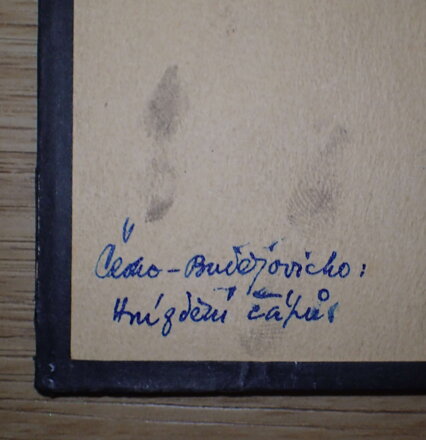 Česko-Budějovicko:
Hnízdění čápů